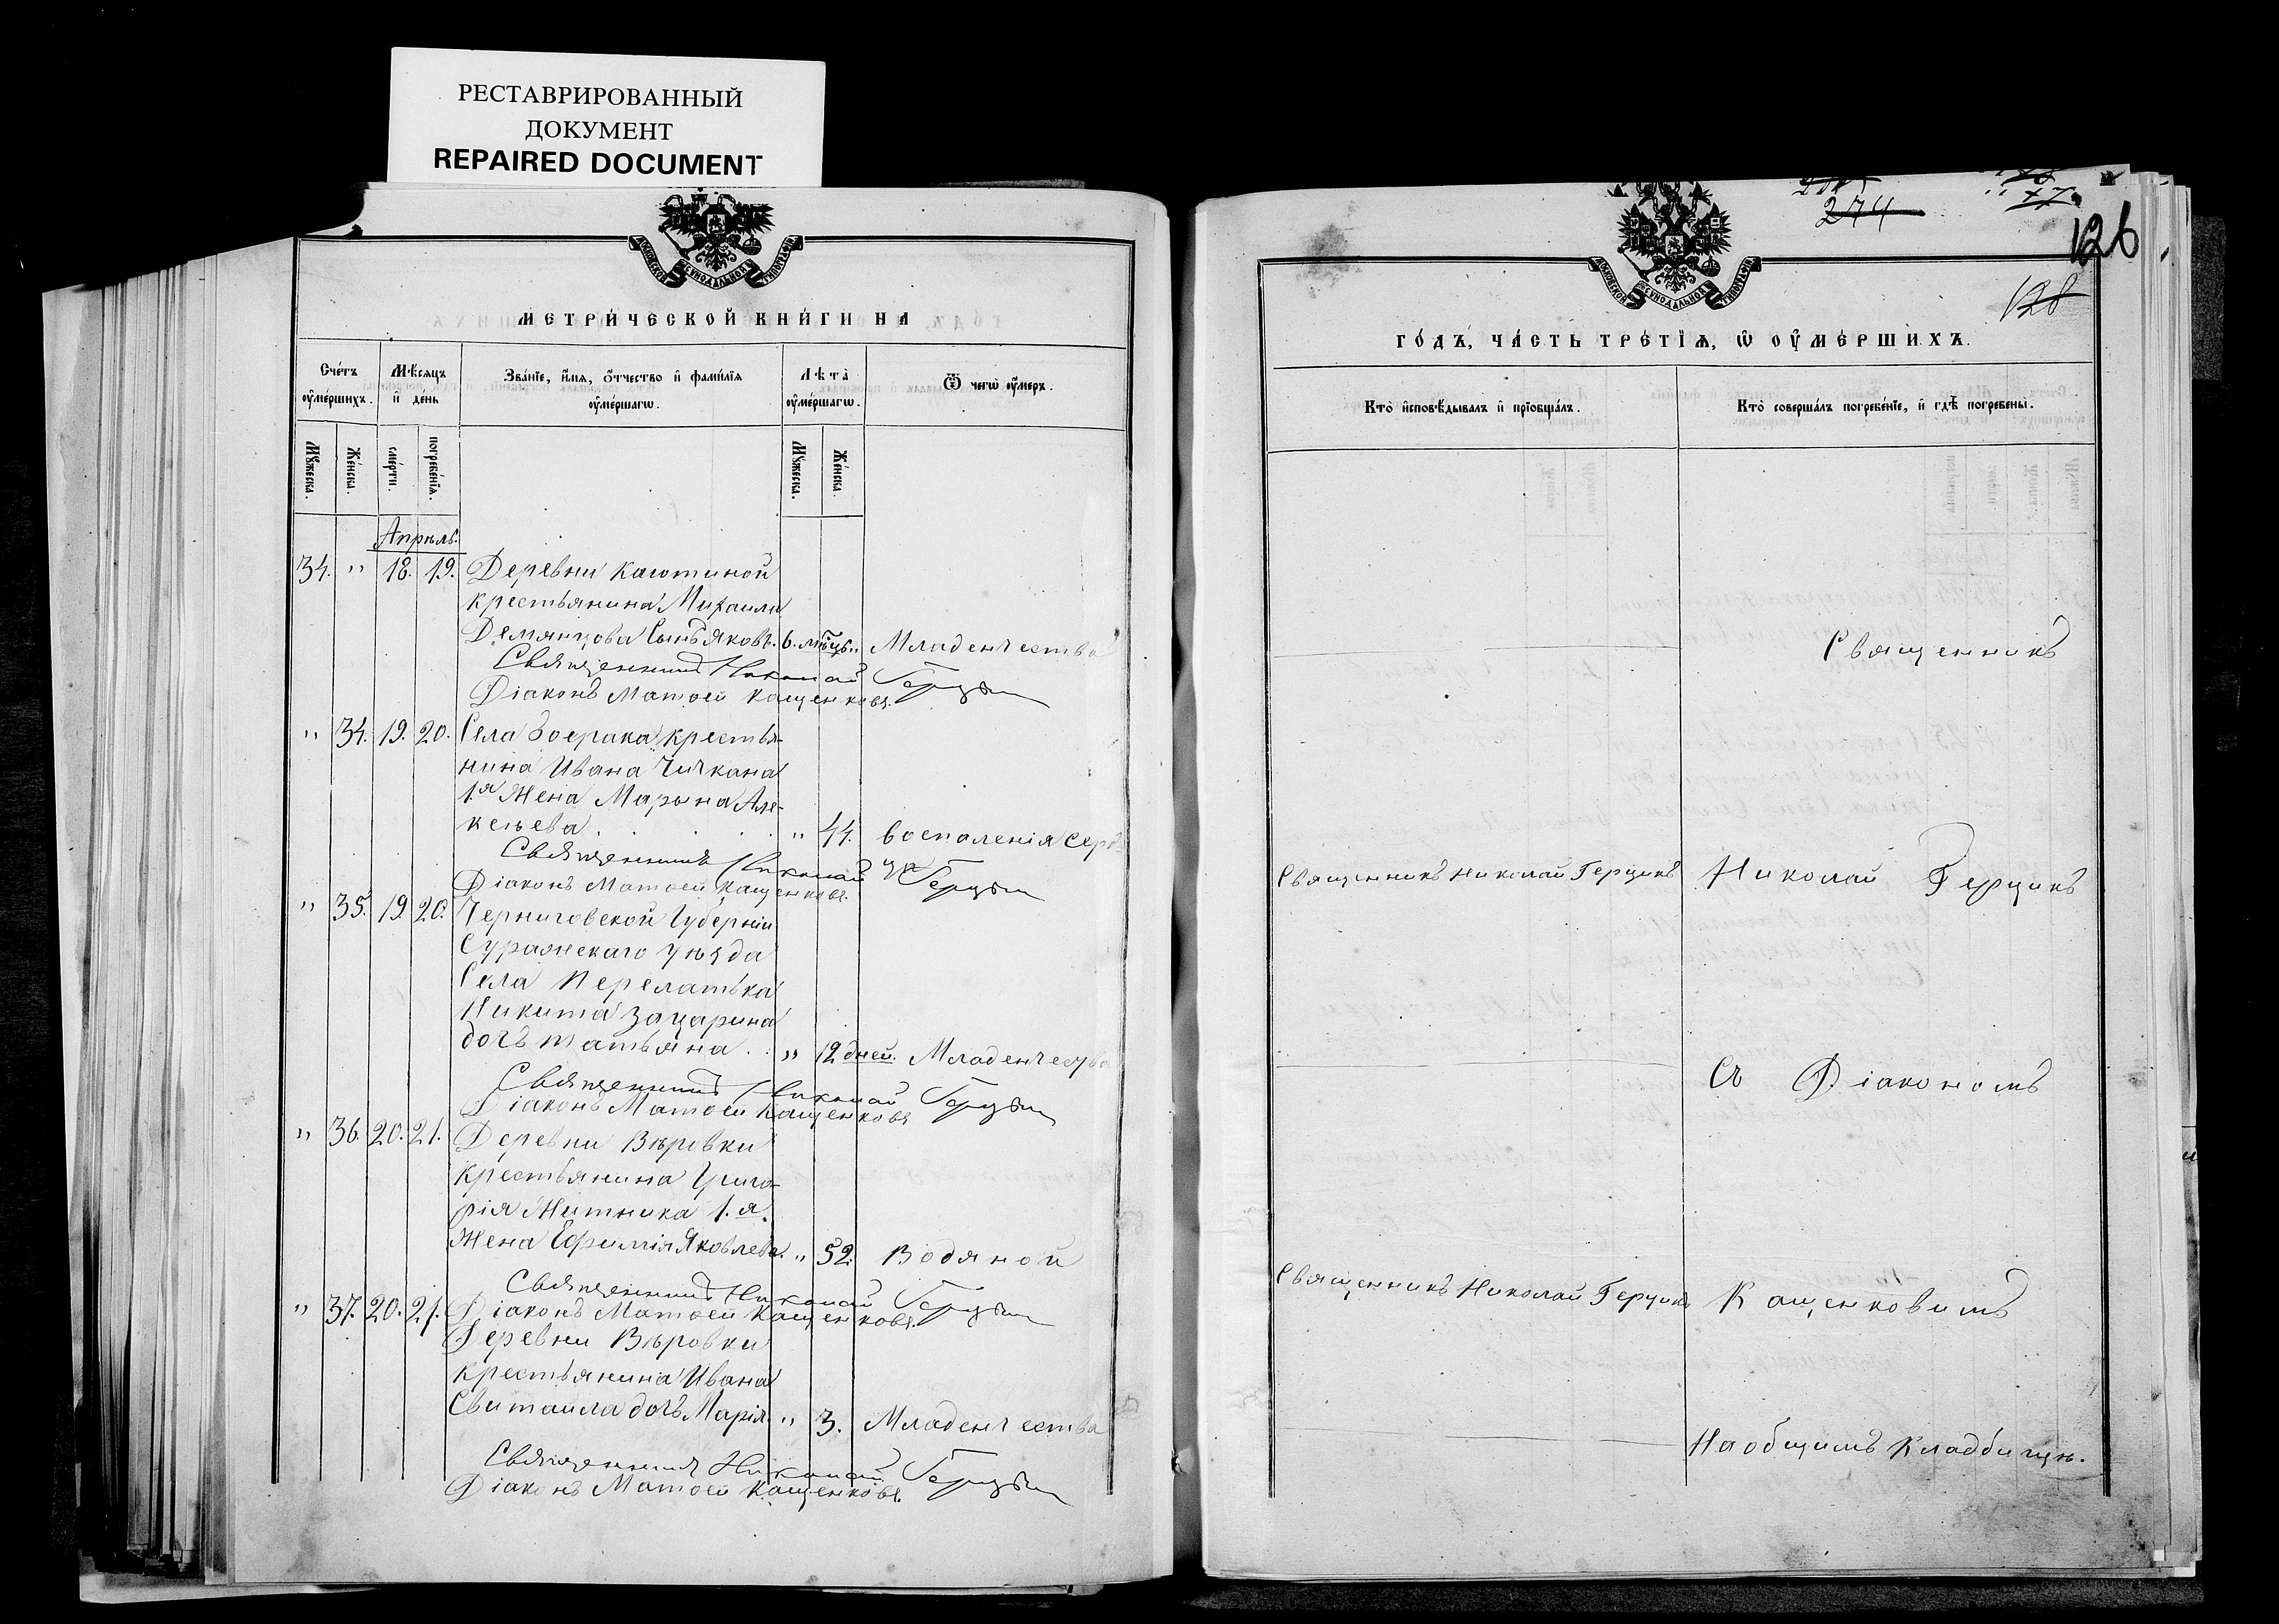 РЕСТАВРИРОВАННЫЙ
ДОКУМЕНТ
REPAIRED DOCUMENT
МОСКОВСКОЙ СѴНОДАЛЬНОЙ ТИПОГРАФІИ
МЕТРИ́ЧЕСКОЙ КНИ́ГИ НА
Сче́тъ ᲂу҆ме́ршихъ.
Мѣ́сяцъ и҆ де́нь
Зва́нїе, и҆́мѧ, ѻ҆́тчество и҆ фами́лїѧ ᲂу҆ме́ршагѡ.
Лѣ́та ᲂу҆ме́ршагѡ.
Ѿ чегѡ̀ ᲂу҆́меръ.
Мꙋ́жеска.
Же́нска.
сме́рти.
погребе́нїѧ.
Мꙋ́жеска.
Же́нска.
Апрѣль.
34. " 18. 19. Деревни Каютиной
крестьянина Михаила
Демянцова Сынъ Яковъ. 6. мѣсцъ. " Младенчества
Священникъ Николай Герцыкъ
Діаконъ Матѳей Кащенковъ.
" 34. 19. 20. Села Боерака крестья-
нина Ивана Чичкана
1.я Жена Марина Але-
ксѣева . . . . " 44. воспаленія серд
ца
Священникъ Николай Герцыкъ
Діаконъ Матѳей Кащенковъ.
" 35. 19. 20. Черниговской Губерніи
Суражскаго уѣзда
Села
Никита
дочь Татьяна . . " 12 дней. Младенчества
Священникъ Николай Герцыкъ
Діаконъ Матѳей Кащенковъ
" 36. 20. 21. Деревни Вѣровки
крестьянина Григо-
рія Житника 1.я.
Жена Ефимія Яковлева. " 52. Водяной
Священникъ Николай Герцыкъ
Діаконъ Матѳей Кащенковъ.
" 37. 20. 21.
Деревни Вѣровки
крестьянина Ивана
Свитайла дочь Марія. " 3. Младенчества
Священникъ Николай Герцыкъ
Діаконъ Матѳей Кащенковъ.
274
126
128
МОСКОВСКОЙ СѴНОДАЛЬНОЙ ТИПОГРАФІИ
ГО́ДЪ, ЧА́СТЬ ТРЕ́ТЇѦ, Ѡ҆ ᲂУ҆МЕ́РШИХЪ.
Кто̀ и҆сповѣ́дывалъ и҆ прїѡбща́лъ.
Кто̀ соверша́лъ погребе́нїе, и҆ гдѣ̀ погребены̀.
Священникъ
Священникъ Николай Герцикъ Николай Герцикъ
Съ Діакономъ
Священникъ Николай Герцикъ Кащенковимъ
На общимъ Кладбищѣ.